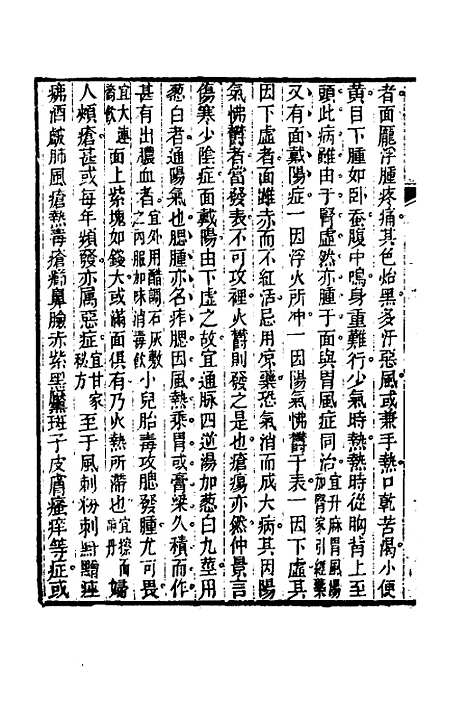 者面龎浮腫疼痛其色炲黑多汗惡風或兼手熱口乾苦渴小便
黃目下腫如卧蚕腹中鳴身重難行少氣時熱熱時從胸背上至
頭此病雖由于腎虛然亦腫于面與胃風症同治宜升麻胃風湯加腎家引經藥
又有面戴陽症一因浮火所冲一因陽氣怫欝于表一因下虛其
因下虛者面雖赤而不紅活忌用凉藥恐氣消而成大病其因陽
氣怫欝者當發表不可攻裡火欝則發之是也瘡瘍亦然仲景言
傷寒少陰症面戴陽由下虛之故宜通脉四逆湯加葱白九莖用
葱白者通陽氣也腮腫亦名痄腮因風熱乘胃或膏梁久積而作
甚有出膿血者宜外用醋調石灰敷之內服加味消毒飲小兒胎毒攻腮發腫尤可畏
宜大連翹飲面上紫塊如錢大或滿面俱有乃火熱所滯也宜搽面
人頰瘡甚或每年頻發亦属惡症宜甘家秘方至于風刺粉刺黚䵳痤
疿酒皶肺風瘡熱毒瘡癤鼻臉赤紫黑黶斑子皮膚瘙痒等症或